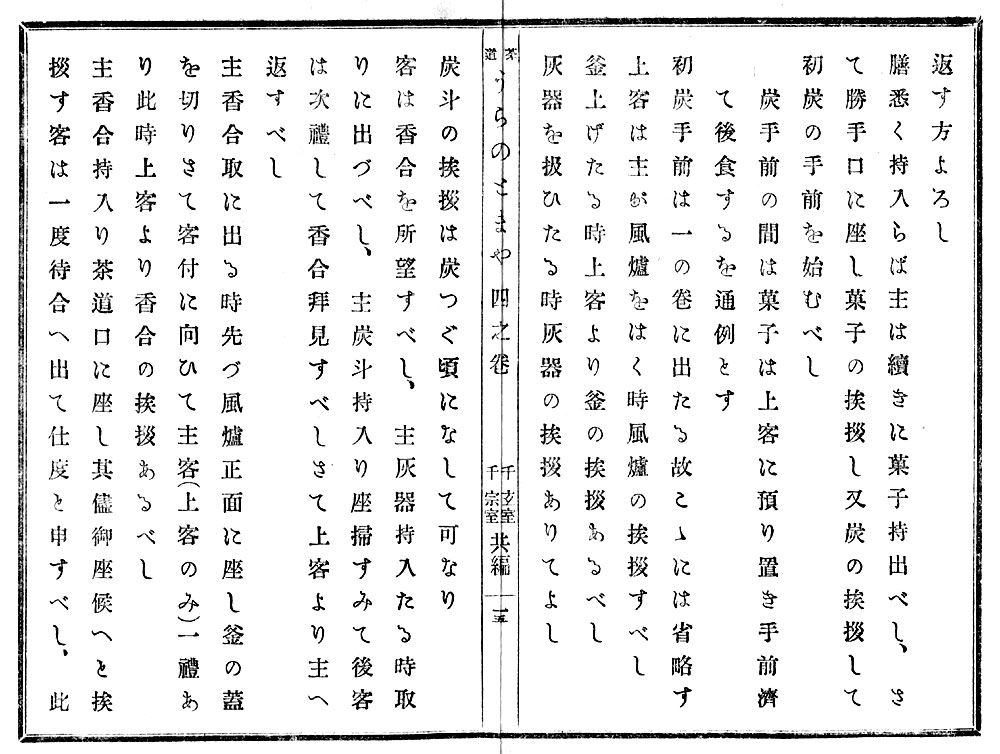 返す方よろし
膳悉く持入らば主は續きに菓子持出べし、さ
て勝手口に座し菓子の挨拶し又炭の挨拶して
初炭の手前を始むべし
炭手前の間は菓子は上客に預り置き手前濟
て後食するを通例とす
初炭手前は一の卷に出たる故こゝには省略す
上客は主が風爐をはく時風爐の挨拶すべし
釜上げたる時上客より釜の挨拶あるべし
灰器を扱ひたる時灰器の挨拶ありてよし
茶道うらのとまや四之卷
千玄室
千宗室
共編
一五
炭斗の挨拶は炭つぐ頃になして可なり
客は香合を所望すべし、主灰器持入たる時取
りに出づべし、主炭斗持入り座掃すみて後客
は次禮して香合拜見すべしさて上客より主へ
返すべし
主香合取に出る時先づ風爐正面に座し釜の蓋
を切りさて客付に向ひて主客(上客のみ)一禮あ
り此時上客より香合の挨拶あるべし
主香合持入り茶道口に座し其儘御座候へと挨
拶す客は一度待合へ出て仕度と申すべし、此